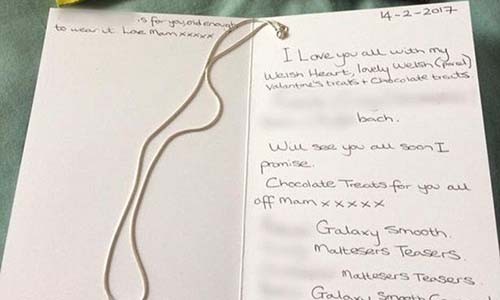 is for you, old enough
to wear it Love Mam xxxxx
14-2-2017
I Love you all with my
Welsh Heart, lovely Welsh
Valentine's treats + Chocolate treats
bach.
Will see you all soon I
promise.
Chocolate Treats for you all
off Mam xxxxx
Galaxy Smooth.
Maltesers Teasers.
Maltesers Teasers.
Galaxy Smooth